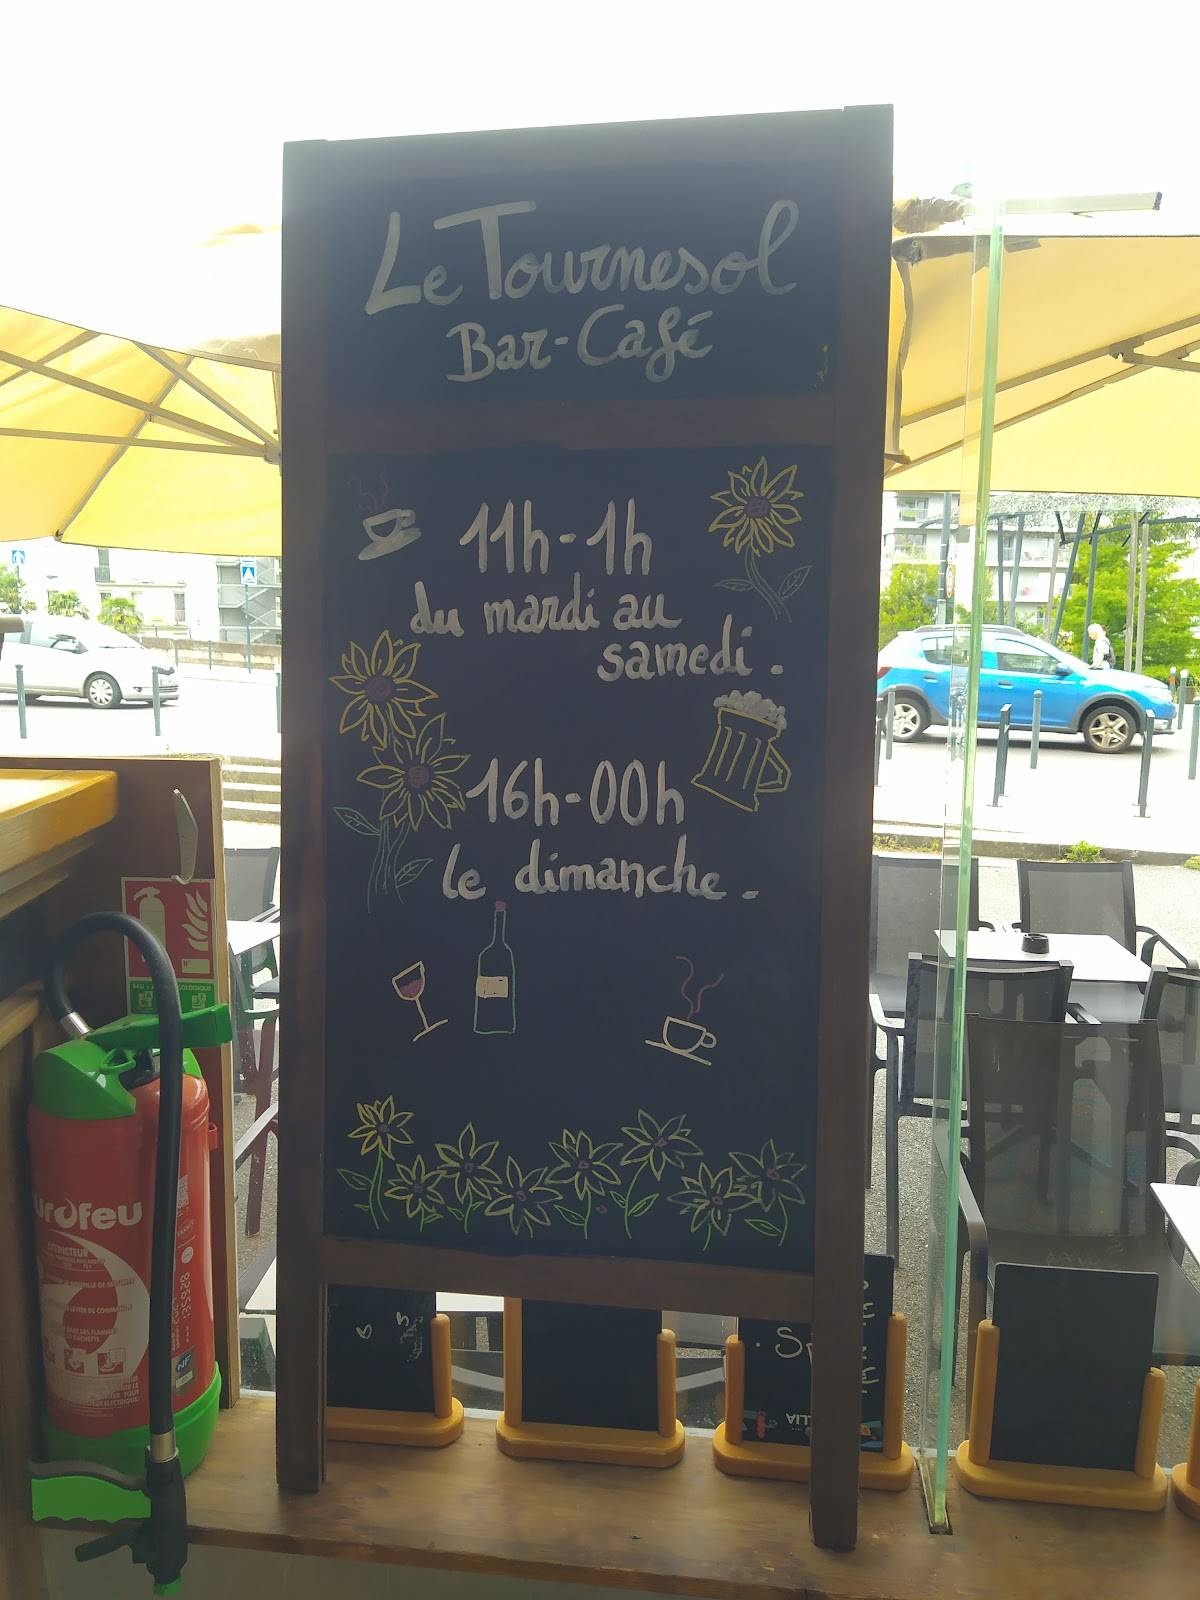 Le Tournesol
Bar-Café
11h-1h
du mardi au
samedi.
16h-00h
le dimanche.
urofeu
EXTINCTEUR
NF